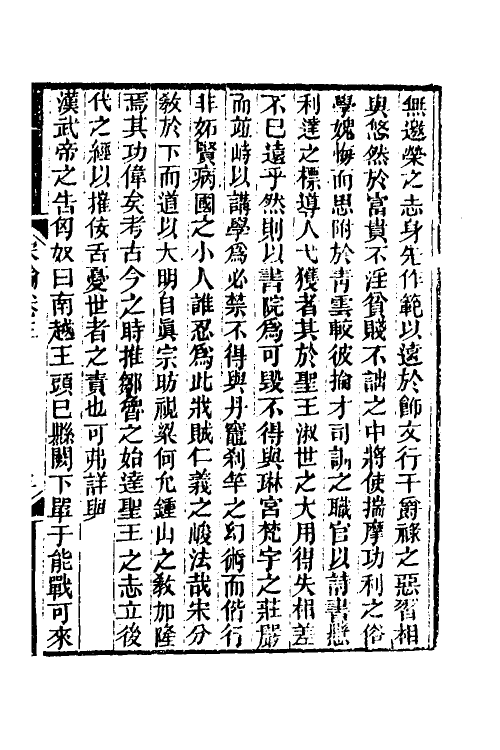 無邀榮之志身先作範以遠於飾文行干爵祿之惡習相
與悠然於富貴不淫貧賤不詘之中將使揣摩功利之俗
學媿悔而思附於青雲較彼掄才司訓之職官以詩書懸
利達之標導人弋獲者其於聖王淑世之大用得失相差
不巳遠乎然則以書院爲可毀不得與琳宮梵宇之莊嚴
而竝峙以講學爲必禁不得與丹竈刹竿之幻術而偕行
非妬賢病國之小人誰忍爲此戕賊仁義之峻法哉宋分
敎於下而道以大明自眞宗昉視梁何允鍾山之敎加隆
焉其功偉矣考古今之時推鄒魯之始達聖王之志立後
代之經以摧佞舌憂世者之責也可弗詳與
漢武帝之告匈奴曰南越王頭巳縣闕下單于能戰可來
宋論卷三